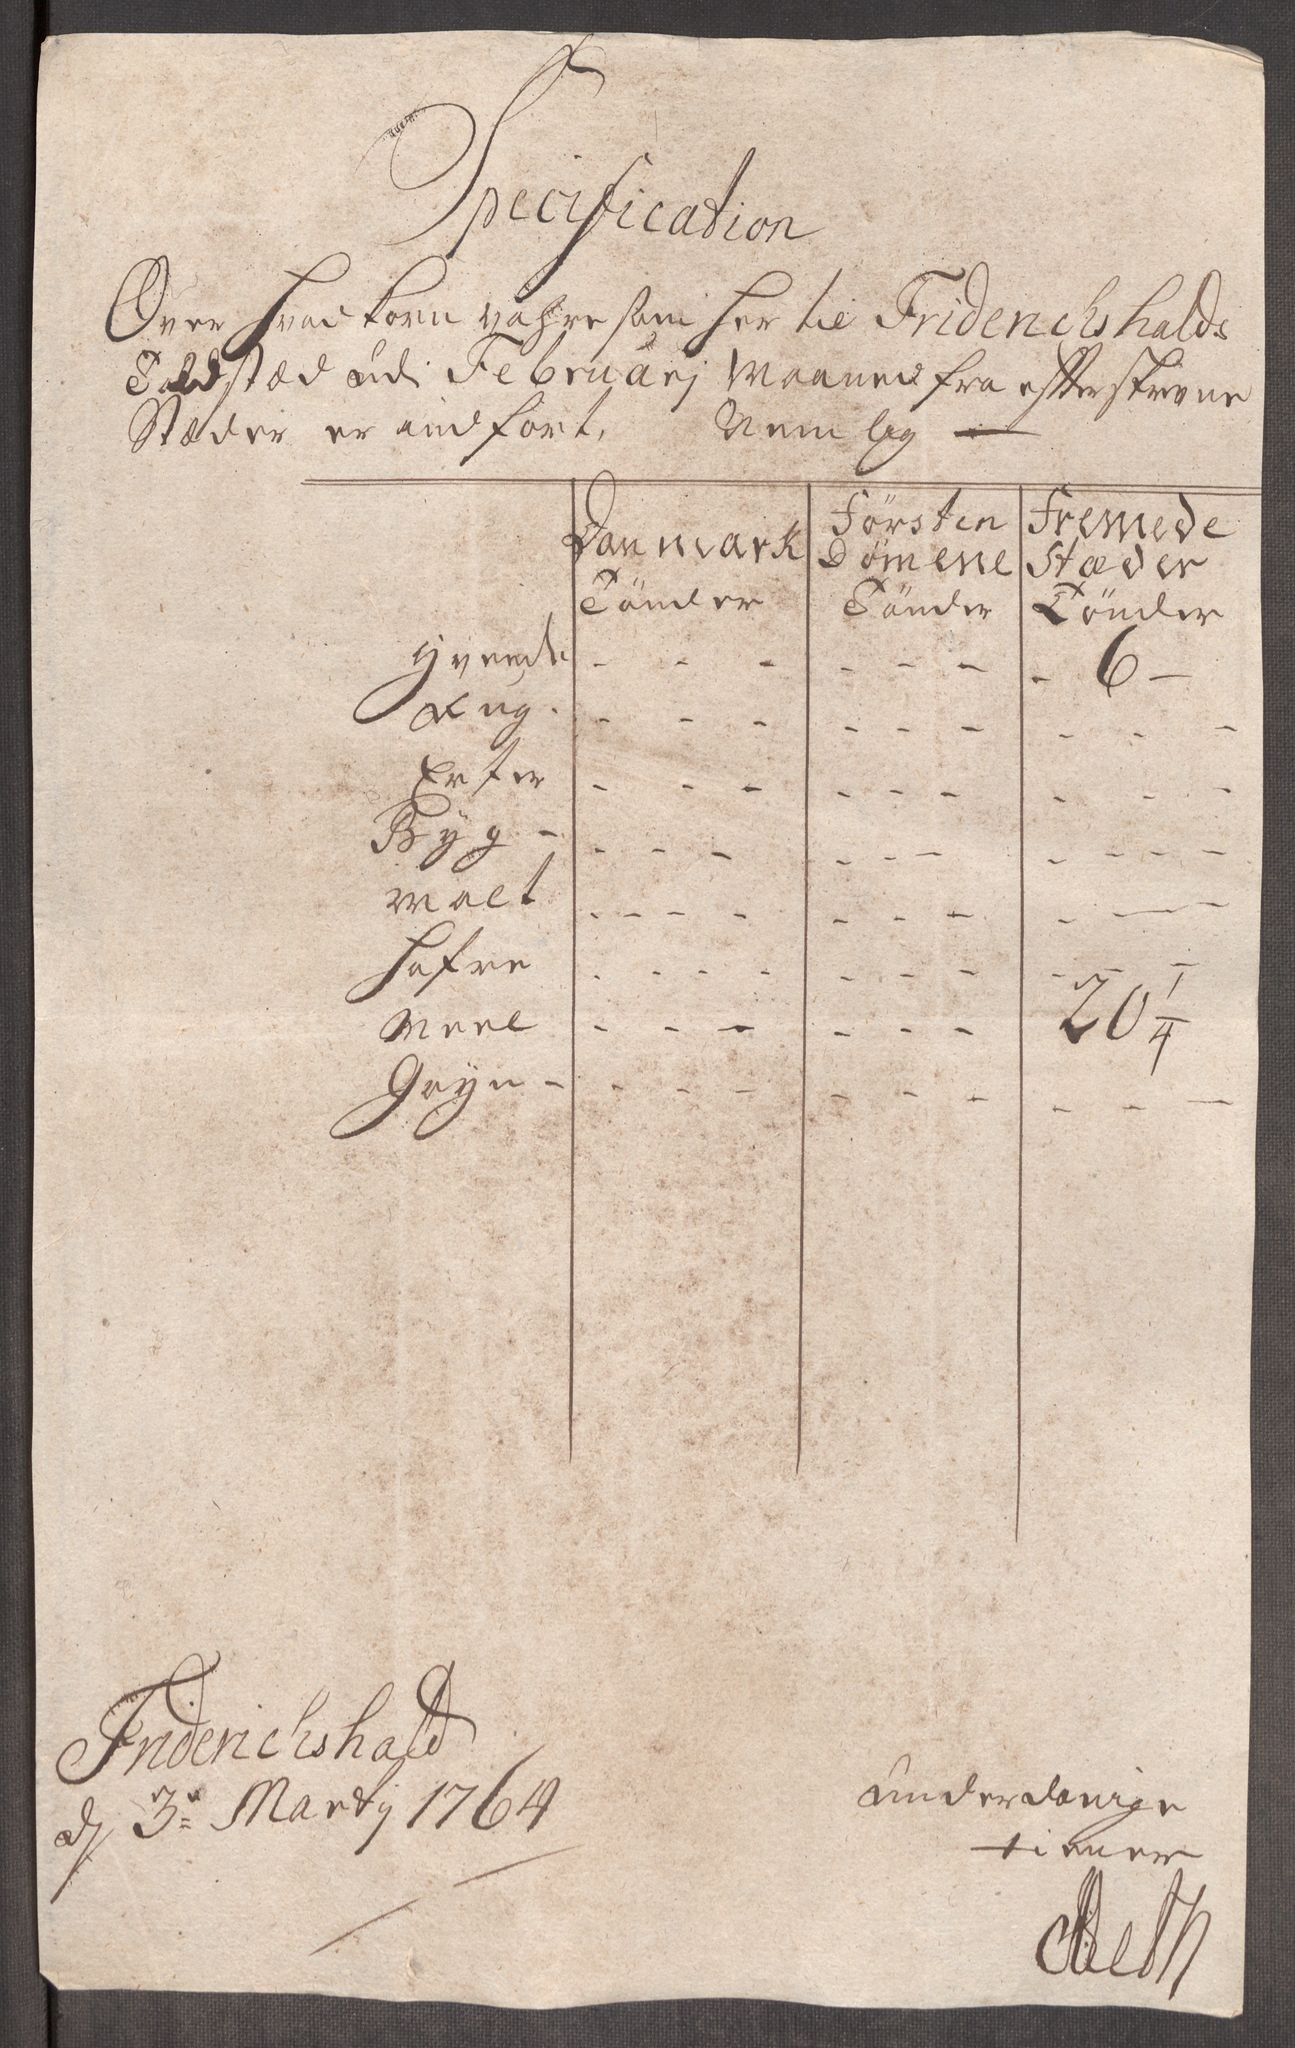 Specification
Over hvad korn vahre som her til Friderichshalds
Toldstæd udi Februarj Maaned fra efterskrevne
Stæder er indført, Nemlig
Danmark Første Fremede
Dømene Stæder
Tönder Tönder Tönder
Hveede - - - - - - - 6 -
Rug - - - - - - - - -
Erter - - - - - - - - -
Byg - - - - - - - - - - -
Malt - - - - - - - - - -
Hafre - - - - - - - - - -
Meel - - - - - - 20 1/4
Gryn - - - - - - - - - -
Friderichshald
d 3e Martij 1764
underdanige
tiener